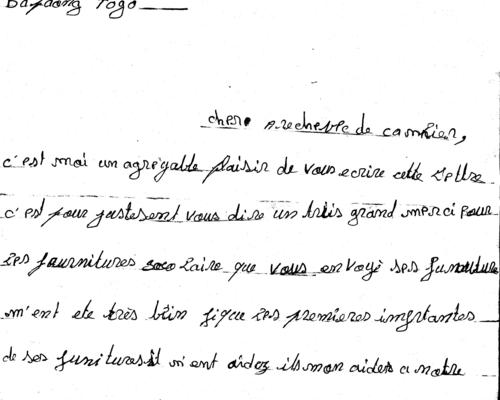 Bafaong Togo
chere Archevec de camrier,
c'est moi un agreyable plaisir de vous ecrire cette lettre
c'est pour justesent vous dire un triis grand merci pour
les fournitures scolaire que vous envoyé ses
m'ent ete très biin les premieres imprtantes
de ses funitures m'ent aidez ils mon aider a notre